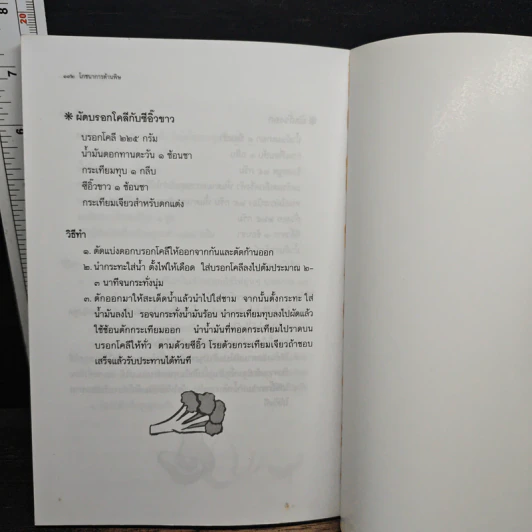 ๑๙๒ โภชนาการต้านพิษ
✳ ผัดบรอกโคลีกับซีอิ๊วขาว
บรอกโคลี ๒๒๕ กรัม
น้ำมันดอกทานตะวัน ๑ ช้อนชา
กระเทียมทุบ ๑ กลีบ
ซีอิ๊วขาว ๑ ช้อนชา
กระเทียมเจียวสำหรับตกแต่ง
วิธีทำ
๑. ตัดแบ่งดอกบรอกโคลีให้ออกจากกันและตัดก้านออก
๒. นำกระทะใส่น้ำ ตั้งไฟให้เดือด ใส่บรอกโคลีลงไปต้มประมาณ ๒-
๓ นาทีจนกระทั่งนุ่ม
๓. ตักออกมาให้สะเด็ดน้ำแล้วนำไปใส่ชาม จากนั้นตั้งกระทะ ใส่
น้ำมันลงไป รอจนกระทั่งน้ำมันร้อน นำกระเทียมทุบลงไปผัดแล้ว
ใช้ช้อนตักกระเทียมออก นำน้ำมันที่ทอดกระเทียมไปราดบน
บรอกโคลีให้ทั่ว ตามด้วยซีอิ๊ว โรยด้วยกระเทียมเจียวถ้าชอบ
เสร็จแล้วรับประทานได้ทันที
8
20
7